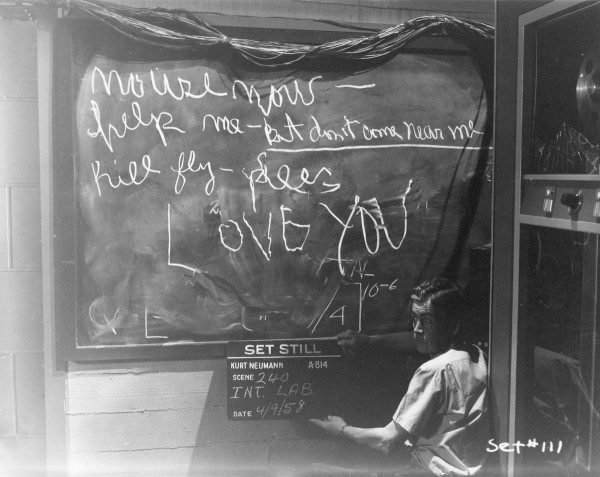 no use now —
help me - But don't come near me
kill fly - please
LOVE YOU
AL
10-6
4
SET STILL
KURT NEUMANN A-814
SCENE 240
INT. LAB
DATE 4/9/58
Set #111